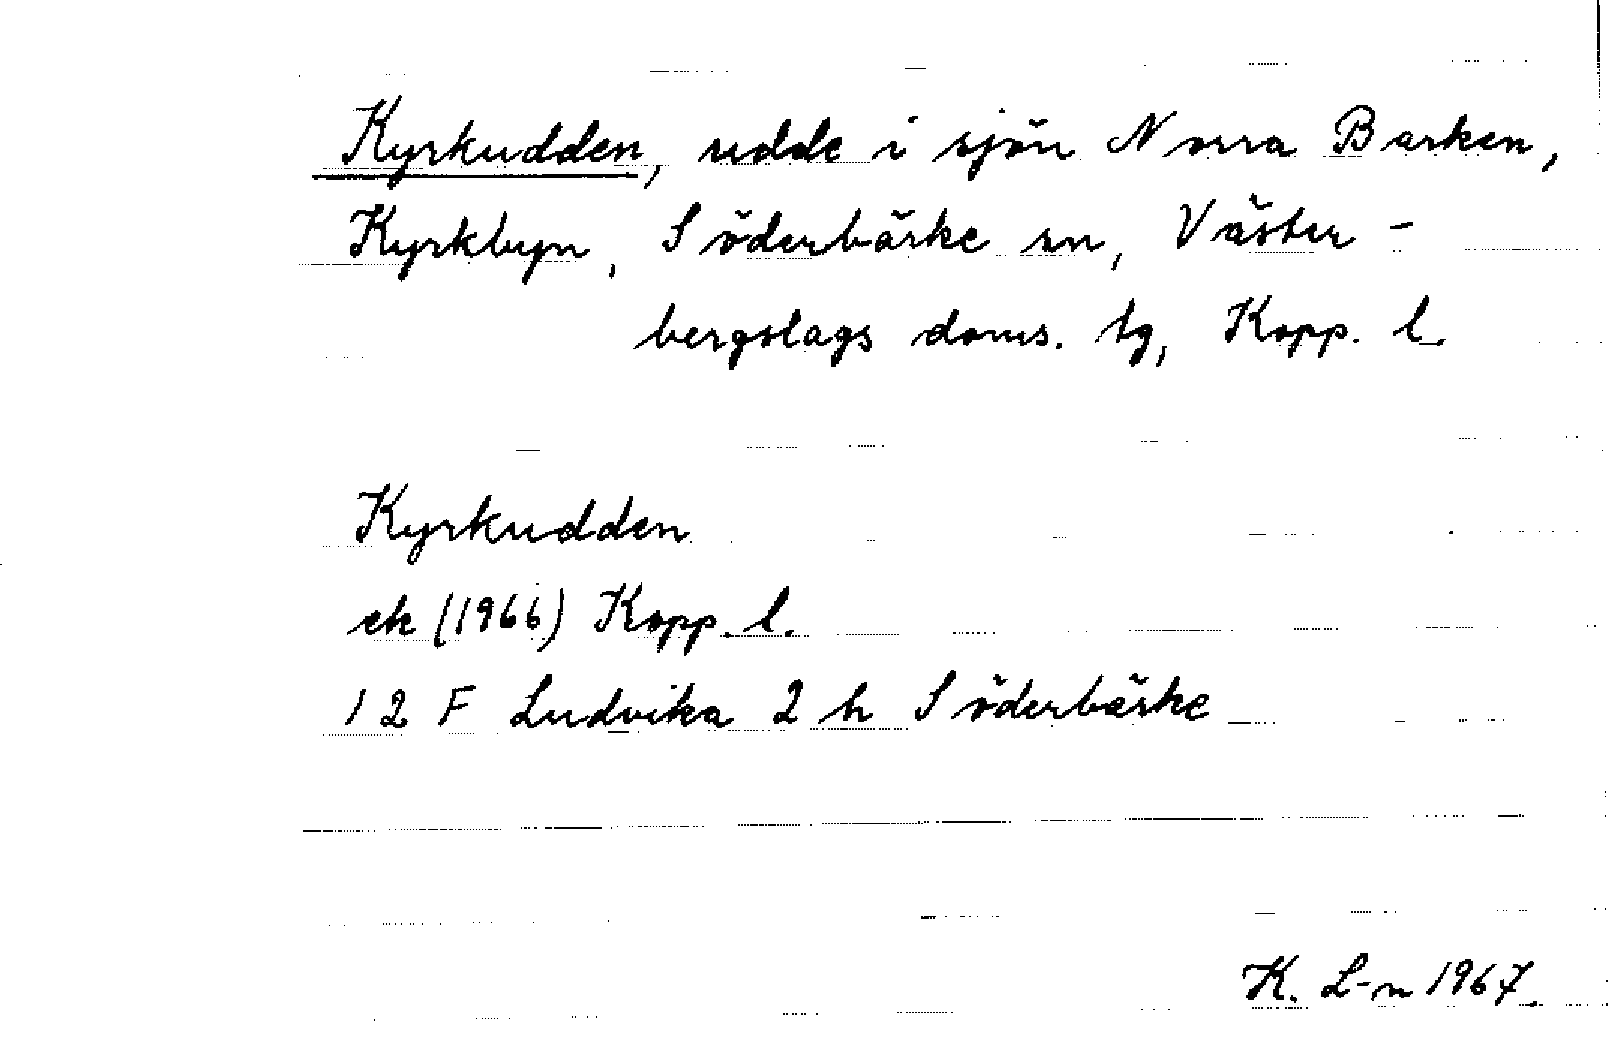 Kyrkudden, udde i sjön Norra Barken,
Kyrkbyn, Söderbärke sn, Väster-
bergslags doms. tg, Kopp. l.
Kyrkudden
ek (1966) Kopp. l.
12 F Ludvika 2 h Söderbärke
K. L-n 1967.